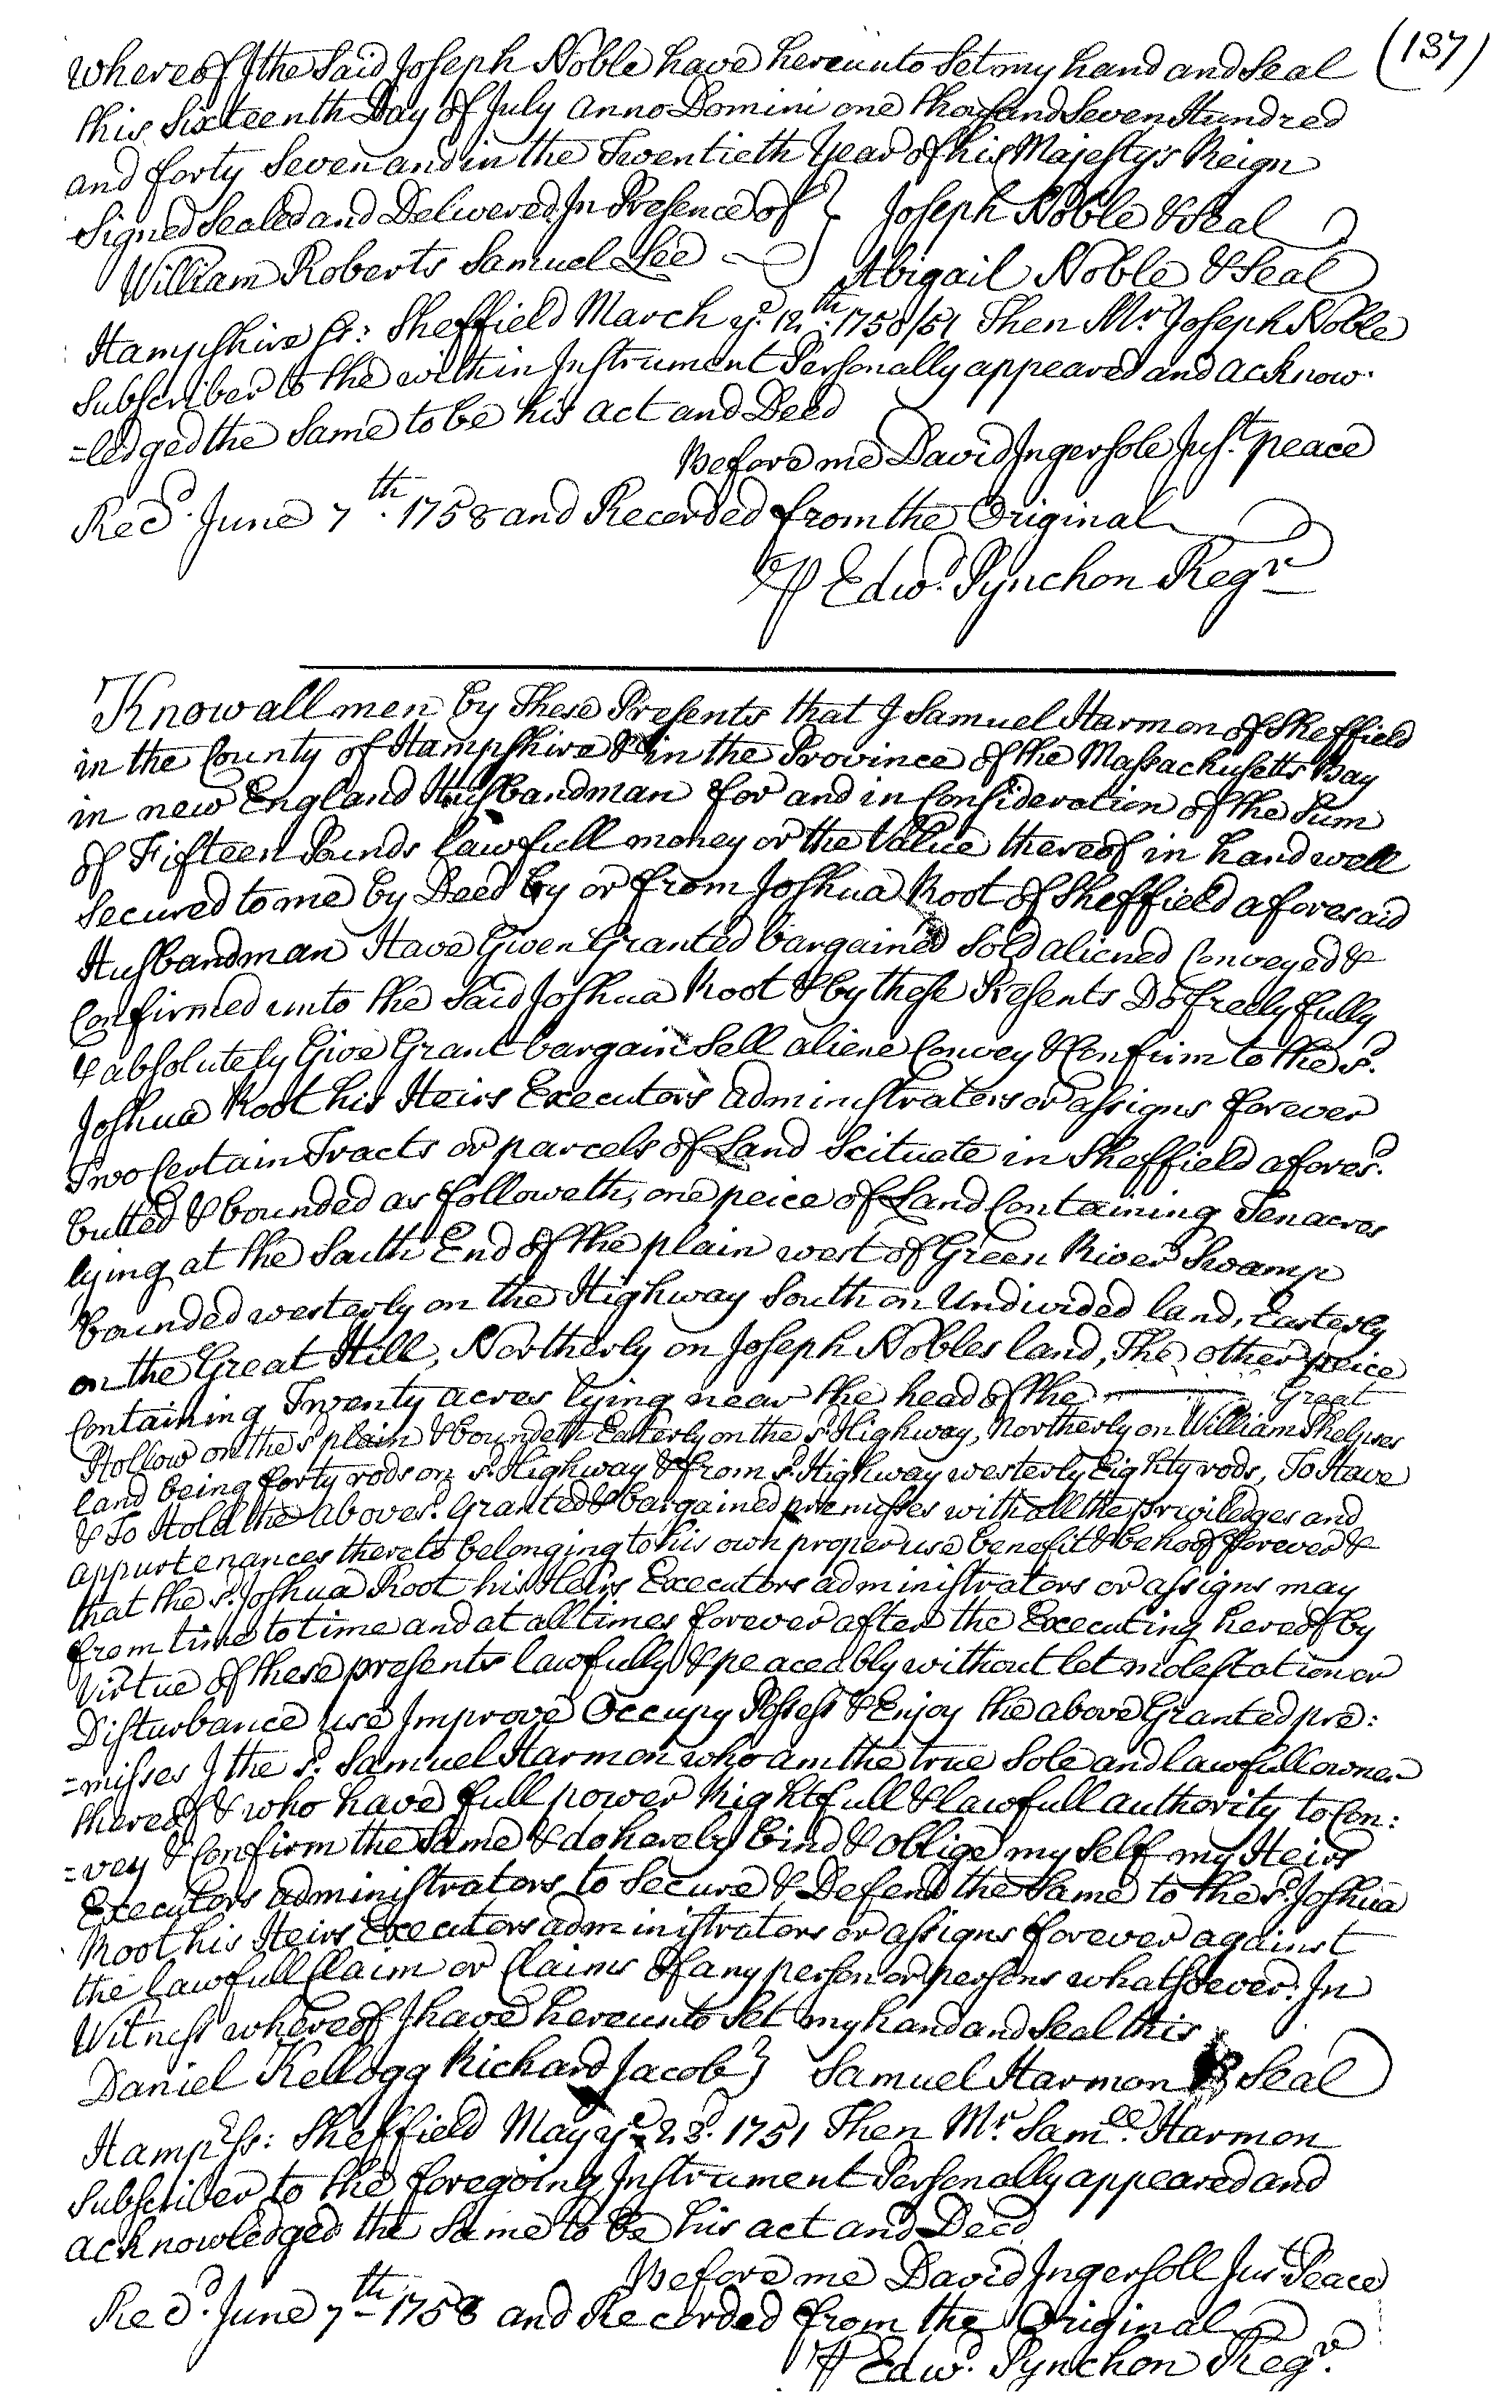 (137)
whereof I the Said Joseph Noble have hereunto Set my hand and Seal
this Sixteenth Day of July anno Domini one thousand Seven Hundred
and forty Seven and in the Twentieth Year of his Majesty's Reign
Signed Sealed and Delivered In Presence of } Joseph Noble & Seal
William Roberts Samuel Lee } Abigail Noble & Seal
Hampshire Ss: Sheffield March ye. 12th. 1750/51 Then Mr. Joseph Noble
Subscriber to the within Instrument Personally appeared and acknow-
=ledged the Same to be his act and Deed
Before me David Ingersole Just. peace
Recd. June 7th. 1758 and Recorded from the Original
℔ Edwd. Pynchon Regr
Know all men by These Presents that I Samuel Harmon of Sheffield
in the County of Hampshire & in the Province of the Massachusetts Bay
in new England Husbandman for and in Consideration of the Sum
of Fifteen Pounds lawfull money or the Value thereof in hand well
Secured to me by Deed by or from Joshua Root of Sheffield aforesaid
Husbandman Have Given Granted bargained Sold aliened Conveyed &
Confirmed unto the Said Joshua Root & by these Presents Do freely fully
& absolutely Give Grant bargain Sell aliene Convey & Confirm to the sd.
Joshua Root his Heirs Executors administrators or assigns forever
Two Certain Tracts or parcels of Land Scituate in Sheffield aforesd.
butted & bounded as followeth, one peice of Land Containing Ten acres
lying at the South End of the plain west of Green River Swamp
bounded westerly on the Highway South on Undivided land, Easterly
on the Great Hill, Northerly on Joseph Nobles land, The other peice
Containing Twenty acres lying near the head of the Great
Hollow on the sd plain & boundeth Easterly on the sd Highway, Northerly on William Phelpses
land being forty rods on sd. Highway & from sd. Highway westerly Eighty rods, To Have
& To Hold the abovesd. Granted & bargained premisses with all the priviledges and
appurtenances thereto belonging to his own proper use benefit & behoof forever &
that the sd. Joshua Root his Heirs Executors administrators or assigns may
from time to time and at all times forever after the Executing hereof by
Virtue of these presents lawfully & peaceably without let molestation or
Disturbance use Improve Occupy Possess & Enjoy the above Granted pre:
=misses I the sd. Samuel Harmon who am the true Sole and lawfull owner
thereof & who have full power Rightfull & lawfull authority to Con:
=vey & Confirm the Same & do hereby bind & oblige my Self my Heirs
Executors administrators to Secure & Defend the Same to the sd. Joshua
Root his Heirs Executors administrators or assigns forever against
the lawfull Claim or Claims of any person or persons whatsoever. In
Witness whereof I have hereunto Set my hand and Seal this
Daniel Kellogg Richard Jacob } Samuel Harmon & Seal
Hampr Ss: Sheffield May ye 23d. 1751 Then Mr. Samll. Harmon
Subscriber to the foregoing Instrument Personally appeared and
acknowledged the Same to be his act and Deed
Before me David Ingersoll Just Peace
Recd. June 7th 1758 and Recorded from the Original
℔ Edwd. Pynchon Regr.